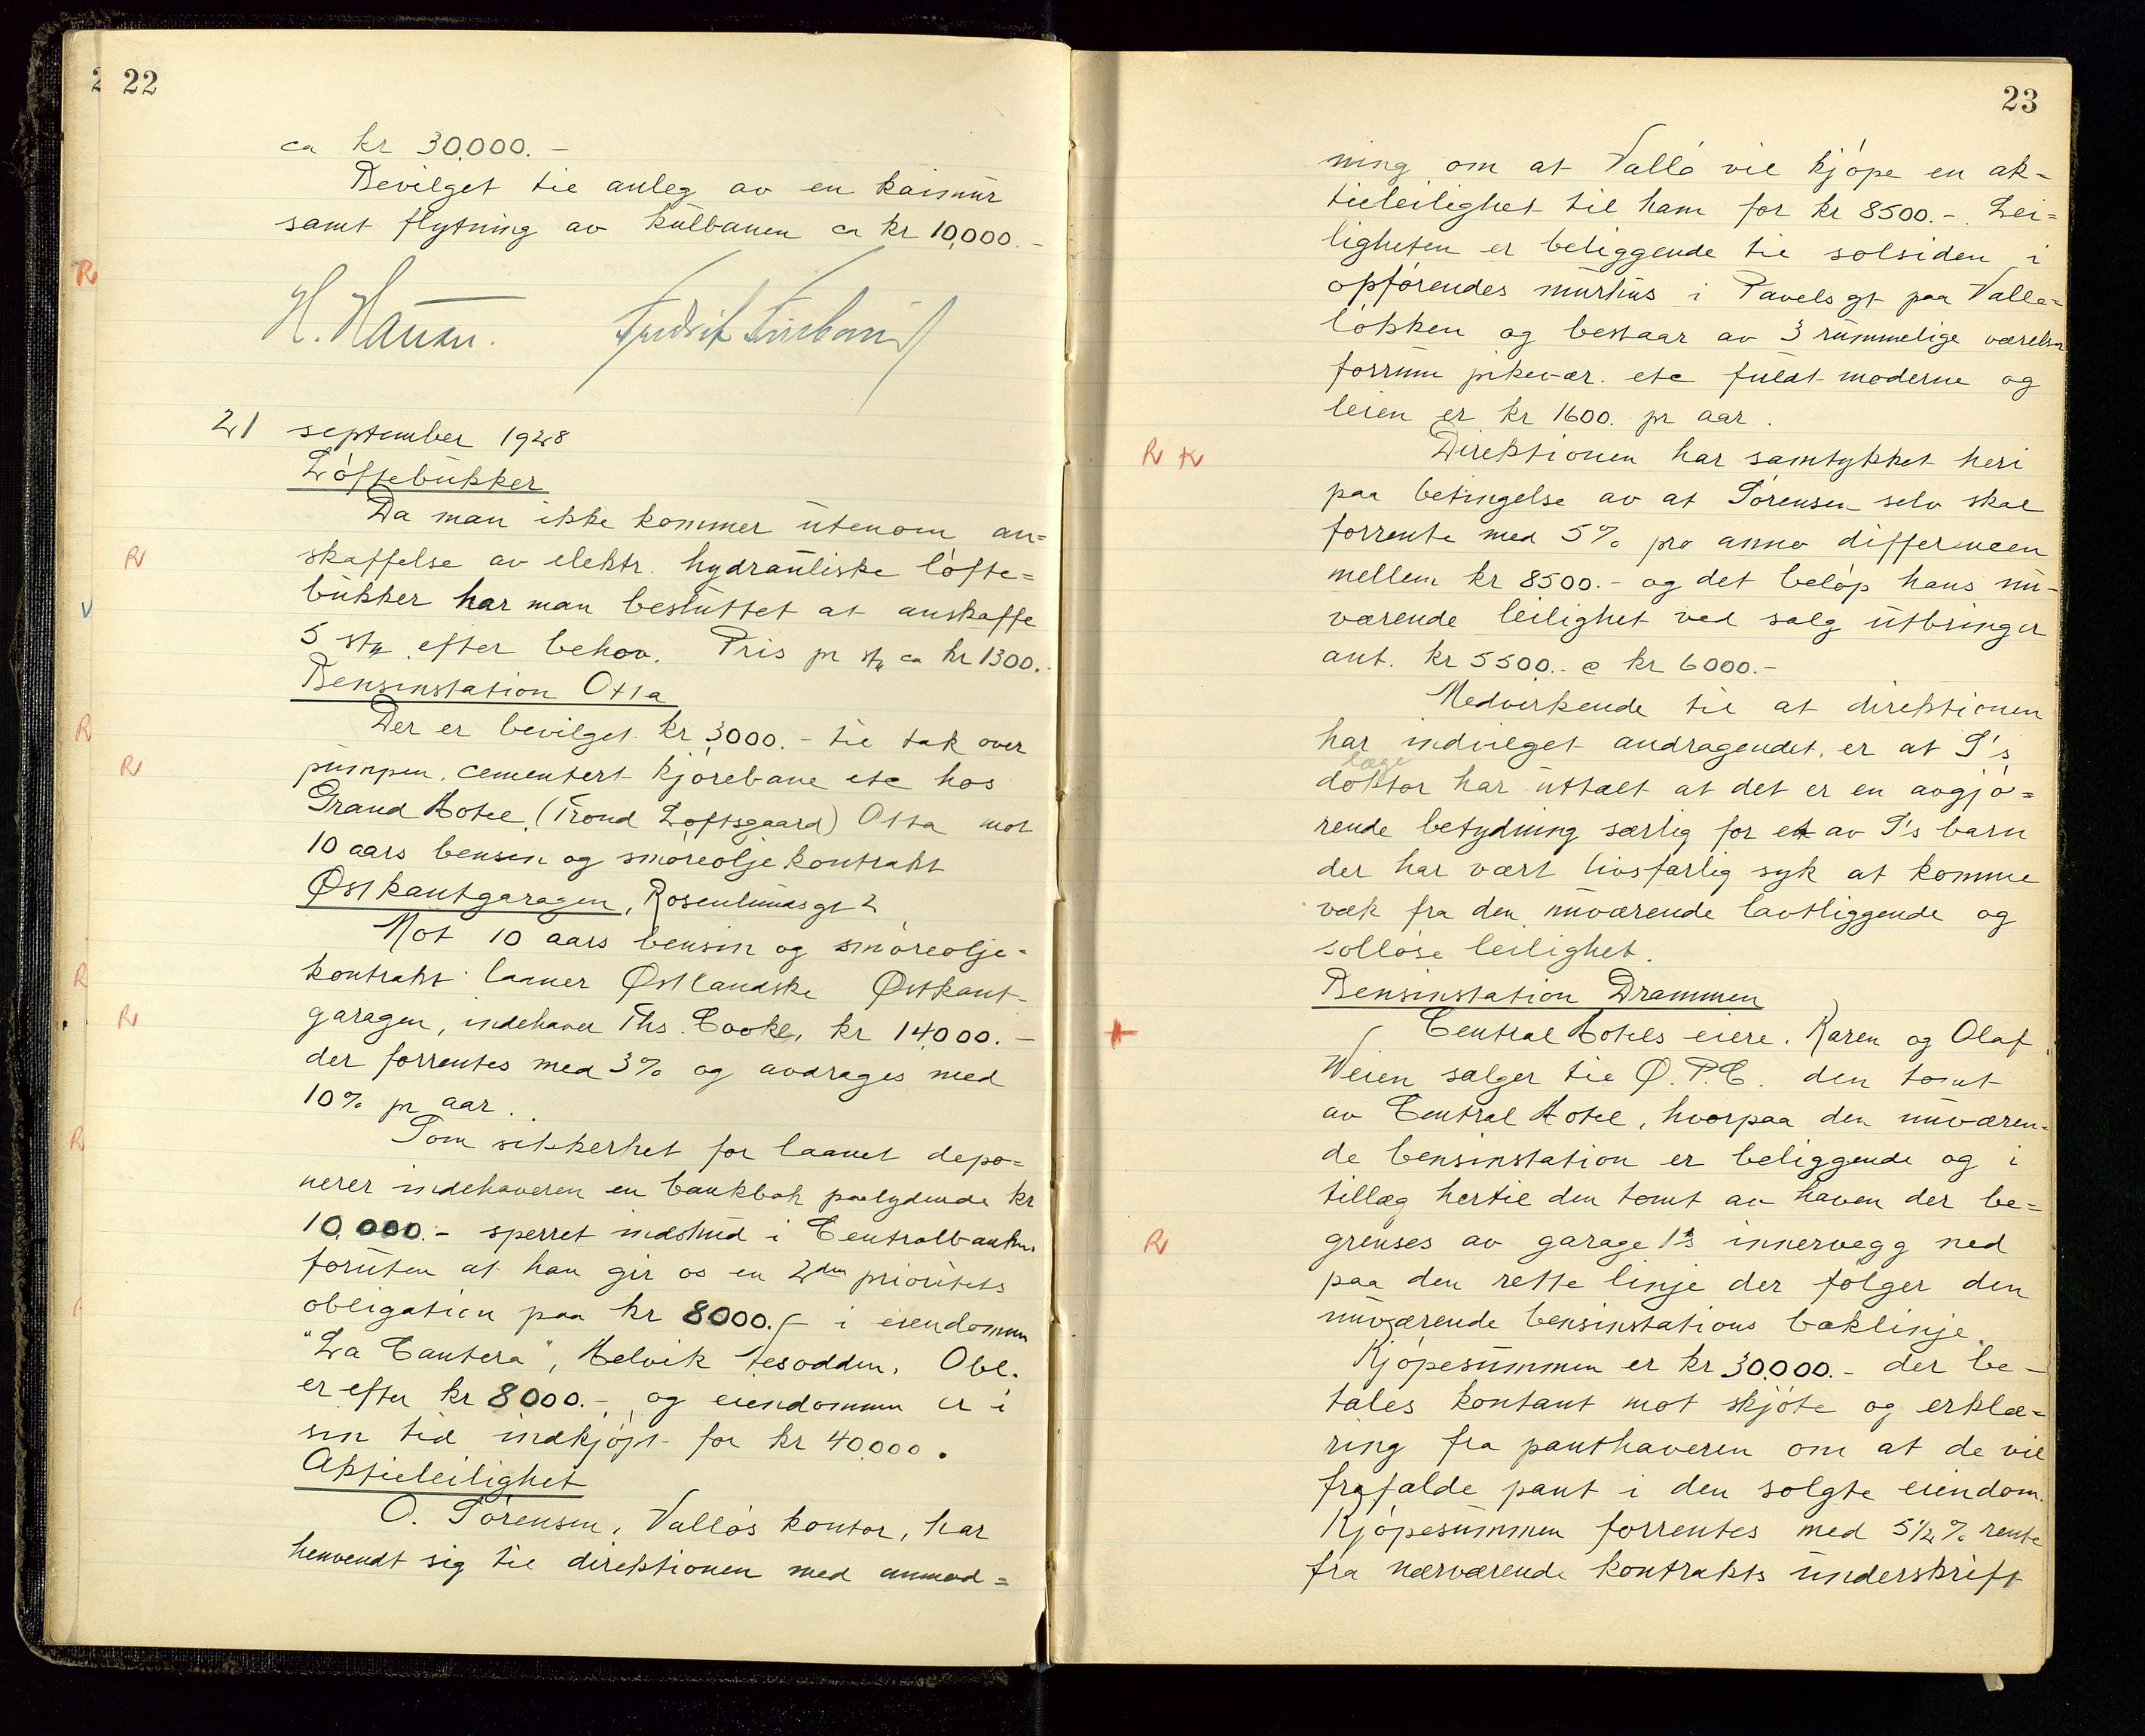 22
ca kr 30.000.-
Bevilget til anleg av en kaimur
samt flytning av kulbanen ca kr 10,000.-
H. Hansen.
Fredrik
21 september 1928
Løftebukker
Da man ikke kommer utenom an=
skaffelse av elektr. hydrauliske løfte=
bukker har man besluttet at anskaffe
5 stk efter behov. Pris pr stk ca kr 1300.-
Bensinstation Otta
Der er bevilget kr 3000.- til tak over
pumpen, cementert kjørebane etc hos
Grand Hotel, (Trond Loftsgaard) Otta mot
10 aars bensin og smøreoljekontrakt
Østkantgaragen, Rosenlundsgt 2
Mot 10 aars bensin og smøreolje-
kontrakt laaner Østlandske Østkant-
garagen, indehaver Ths. Cooke, kr 14,000.-
der forrentes med 3% og avdrages med
10% pr aar.
Som sikkerhet for laanet depo=
nerer indehaveren en bankbok paalydende kr
10,000.- sperret indskud i Centralbanken
foruten at han gir os en 2den prioritets
obligation paa kr 8000.- i eiendommen
"La Cantera", Helvik Nesodden. Obl.
er efter kr 8000.-, og eiendommen er i
sin tid indkjøpt for kr 40.000.
Aktieleilighet
O. Sørensen, Valløs kontor, har
henvendt sig til direktionen med anmod=
23
ning om at Vallø vil kjøpe en ak=
tieleilighet til ham for kr 8500.-. Lei=
ligheten er beliggende til solsiden i
opførendes murhus i Pavelsgt paa Valle=
løkken og bestaar av 3 rummelige værelser
forrum pikevær. etc fuldt moderne og
leien er kr 1600. pr aar.
R K
Direktionen har samtykket heri
paa betingelse av at Sørensen selv skal
forrente med 5% pro anno differencen
mellem kr 8500.- og det beløp hans nu-
værende leilighet ved salg utbringer
ant. kr 5500.- a kr 6000.-
Medvirkende til at direktionen
har indvilget andragendet, er at S's
læge
doktor har uttalt at det er en avgjø=
rende betydning særlig for et av S's barn
der har vært livsfarlig syk at komme
væk fra den nuværende lavtliggende og
solløse leilighet.
Bensinstation Drammen
Central Hotels eiere, Karen og Olaf
Weien sælger til Ø.P.C. den tomt
av Central Hotel, hvorpaa den nuværen-
de bensinstation er beliggende og i
tillæg hertil den tomt av haven der be=
R
grenses av garage 1's innervegg ned
paa den rette linje der følger den
nuværende bensinstations baklinje.
Kjøpesummen er kr 30.000.- der be-
tales kontant mot skjøte og erklæ=
ring fra panthaveren om at de vil
frafalde pant i den solgte eiendom.
Kjøpesummen forrentes med 5½% rente
fra nærværende kontrakts underskrift